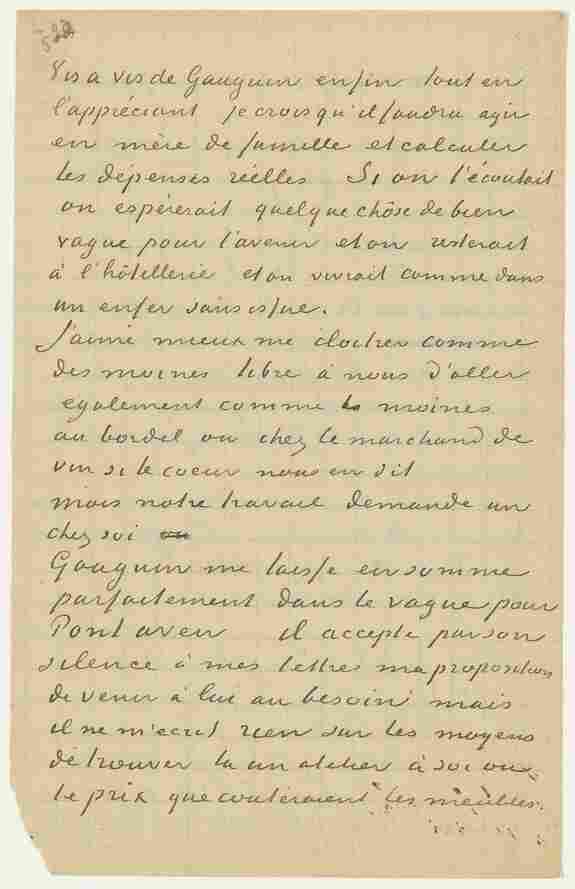 522
Vis à vis de Gauguin enfin tout en
l'appréciant je crois qu'il faudra agir
en mère de famille et calculer
les dépenses réelles. Si on l'écoutait
on espérerait quelque chôse de bien
vague pour l'avenir et on resterait
à l'hôtellerie et on vivrait comme dans
un enfer sans issue.
J'aime mieux me cloîtrer comme
des moines libre à nous d'aller
egalement comme les moines
au bordel ou chez le marchand de
vin si le coeur nous en dit
mais notre travail demande un
chez soi
Gauguin me laisse en somme
parfaitement dans le vague pour
Pont aven il accepte par son
silence à mes lettres ma proposition
de venir à lui au besoin mais
il ne m'ecrit rien sur les moyens
de trouver là un atelier à soi ou
le prix que couteraient les meubles.